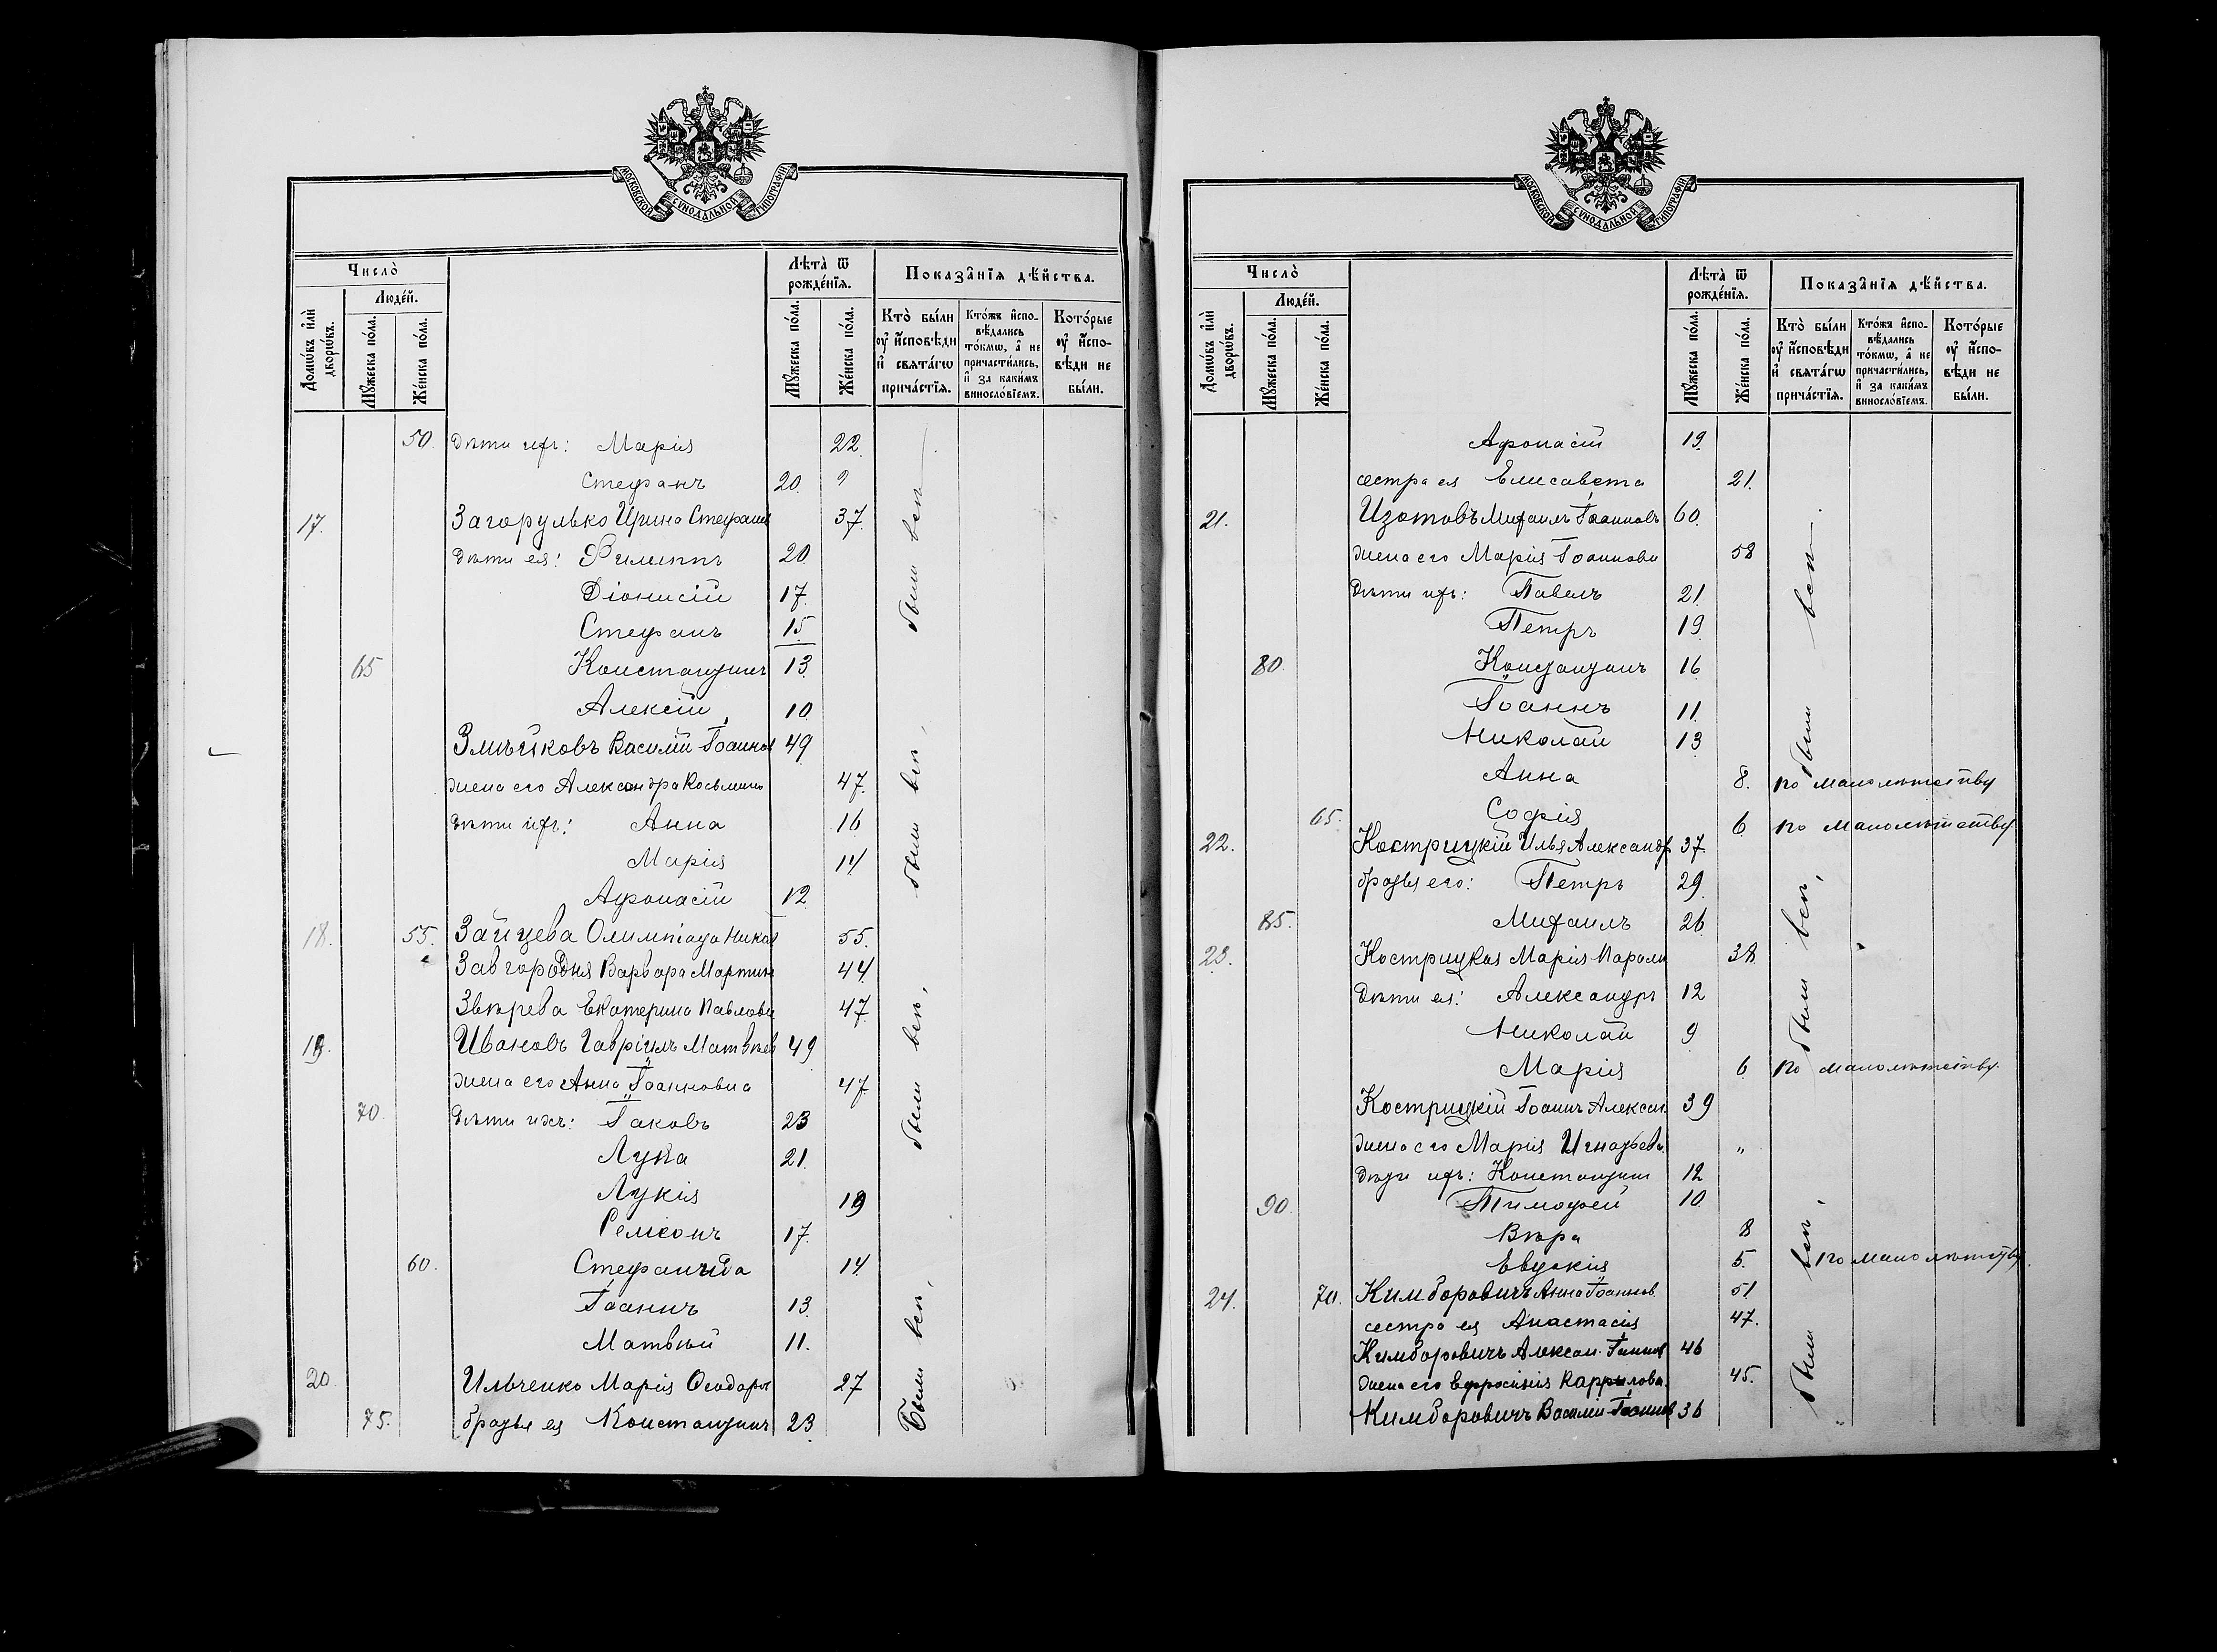 МОСКОВСКОЙ СѴНОДАЛЬНОЙ ТИПОГРАФІИ
Число̀
Людей.
Домѡвъ и҆лѝ дворѡвъ.
Мꙋжеска по́ла.
Же́нска по́ла.
Лѣта̀ ѿ рожде́нїѧ.
Мꙋжеска по́ла.
Же́нска по́ла.
Показа̑нїѧ дѣ́йства.
Кто̀ бы́ли оу҆ и҆́сповѣди и҆ свѧта́гѡ прича́стїѧ.
Кто́жъ и҆спо-вѣ́дались то́кмѡ, а҆ не причасти́лись, и҆ за каки́мъ винословіемъ.
Кото́рые оу҆ и҆́спо-вѣди не бы́ли.
50. дѣти ихъ: Марія 22.
Стефанъ 20.
17. Загорулько Ирина Стефанов 37.
дѣти ея: Филиппъ 20
Діонисій 17.
Стефанъ 15
65 Константинъ 13.
Алексій 10.
Змѣйковъ Василій Іоаннов 49
жена его Александра Косьмин 47.
дѣти ихъ: Анна 16
Марія 14
Афонасій 12
18. 55. Зайцева Олимпіада Никол 55.
Завгородня Варвара Мартин 44.
Звѣрева Екатерина Павлова 47.
19. Ивановъ Гавріилъ Матвѣев 49
жена его Анна Іоанновна 47.
70. Дѣти ихъ: Іаковъ 23
Лука 21.
Лукія 19
17.
60. Стефанида 14.
Іоаннъ 13.
Матвѣй 11.
20. Ильченко Марія Ѳеодоров 27
75. братья ея Константинъ 23.
были всѣ
были всѣ,
были всѣ,
Были всѣ,
МОСКОВСКОЙ СѴНОДАЛЬНОЙ ТИПОГРАФІИ
Число̀
Людей.
Домѡвъ и҆лѝ дворѡвъ.
Мꙋжеска по́ла.
Же́нска по́ла.
Лѣта̀ ѿ рожде́нїѧ.
Мꙋжеска по́ла.
Же́нска по́ла.
Показа̑нїѧ дѣ́йства.
Кто̀ бы́ли оу҆ и҆́сповѣди и҆ свѧта́гѡ прича́стїѧ.
Кто́жъ и҆спо-вѣ́дались то́кмѡ, а҆ не причасти́лись, и҆ за каки́мъ винословіемъ.
Кото́рые оу҆ и҆́спо-вѣди не бы́ли.
Афонасій 19.
сестра ея Елисавета 21.
21. Изотовъ Михаилъ Іоанновъ 60.
жена его Марія Іоаннова 58
Дѣти ихъ: Павелъ 21.
Петръ 19.
80. Константинъ 16
Іоаннъ 11.
Николай 13
Анна 8. по малолѣтству
65. Софія 6. по малолѣтству.
22. Кострицкій Илья Александр 37.
братья его: Петръ 29.
85. Михаилъ 26
23. Кострицкая Марія 38
дѣти ея: Александръ 12
Николай 9
Марія 6. по малолѣтству.
Кострицкій Іоаннъ Алексан. 39
жена его Марія Игнатьева „
дѣти ихъ: Константин 12
90. Тимофей 10.
Вѣра 8
Евдокія 5. по малолѣтству.
24. 70. Кимборовичъ Анна Іоаннов. 51
сестра ея Анастасія 47.
Кимборовичъ Алексан. Іоаннов 46
жена его Ефросинія 45.
Кимборовичъ Василій Іоаннов 36
были всѣ
были всѣ,
были всѣ,